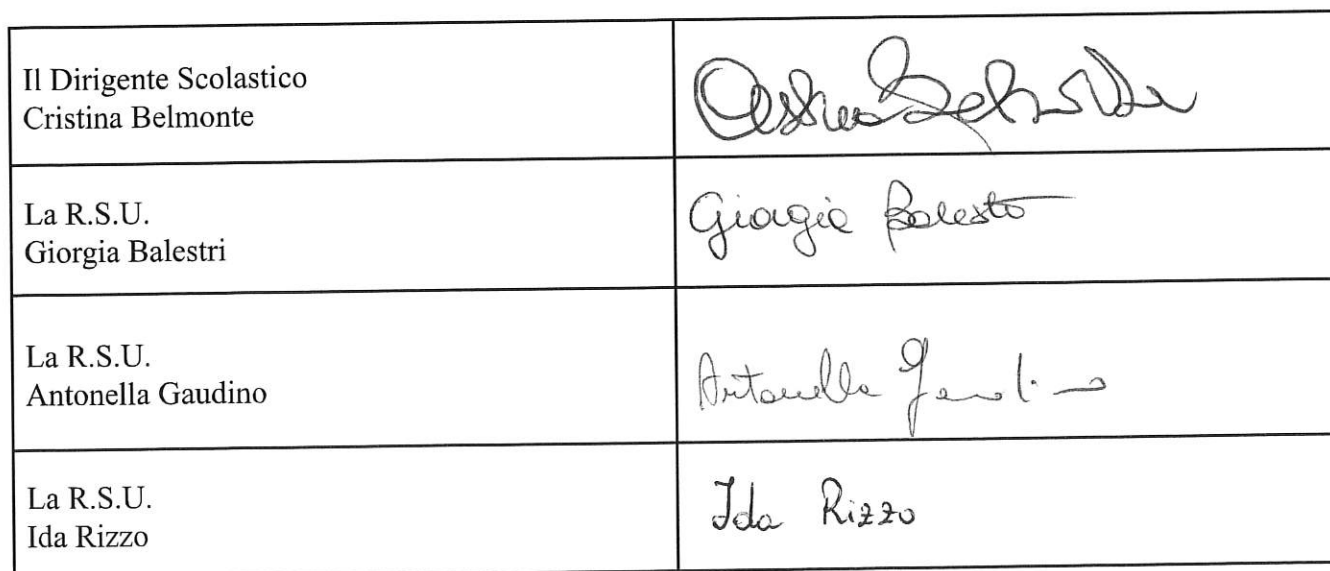 Il Dirigente Scolastico
Cristina Belmonte
La R.S.U.
Giorgia Balestri
Giorgia Balestri
La R.S.U.
Antonella Gaudino
Antonella Gaudino
La R.S.U.
Ida Rizzo
Ida Rizzo